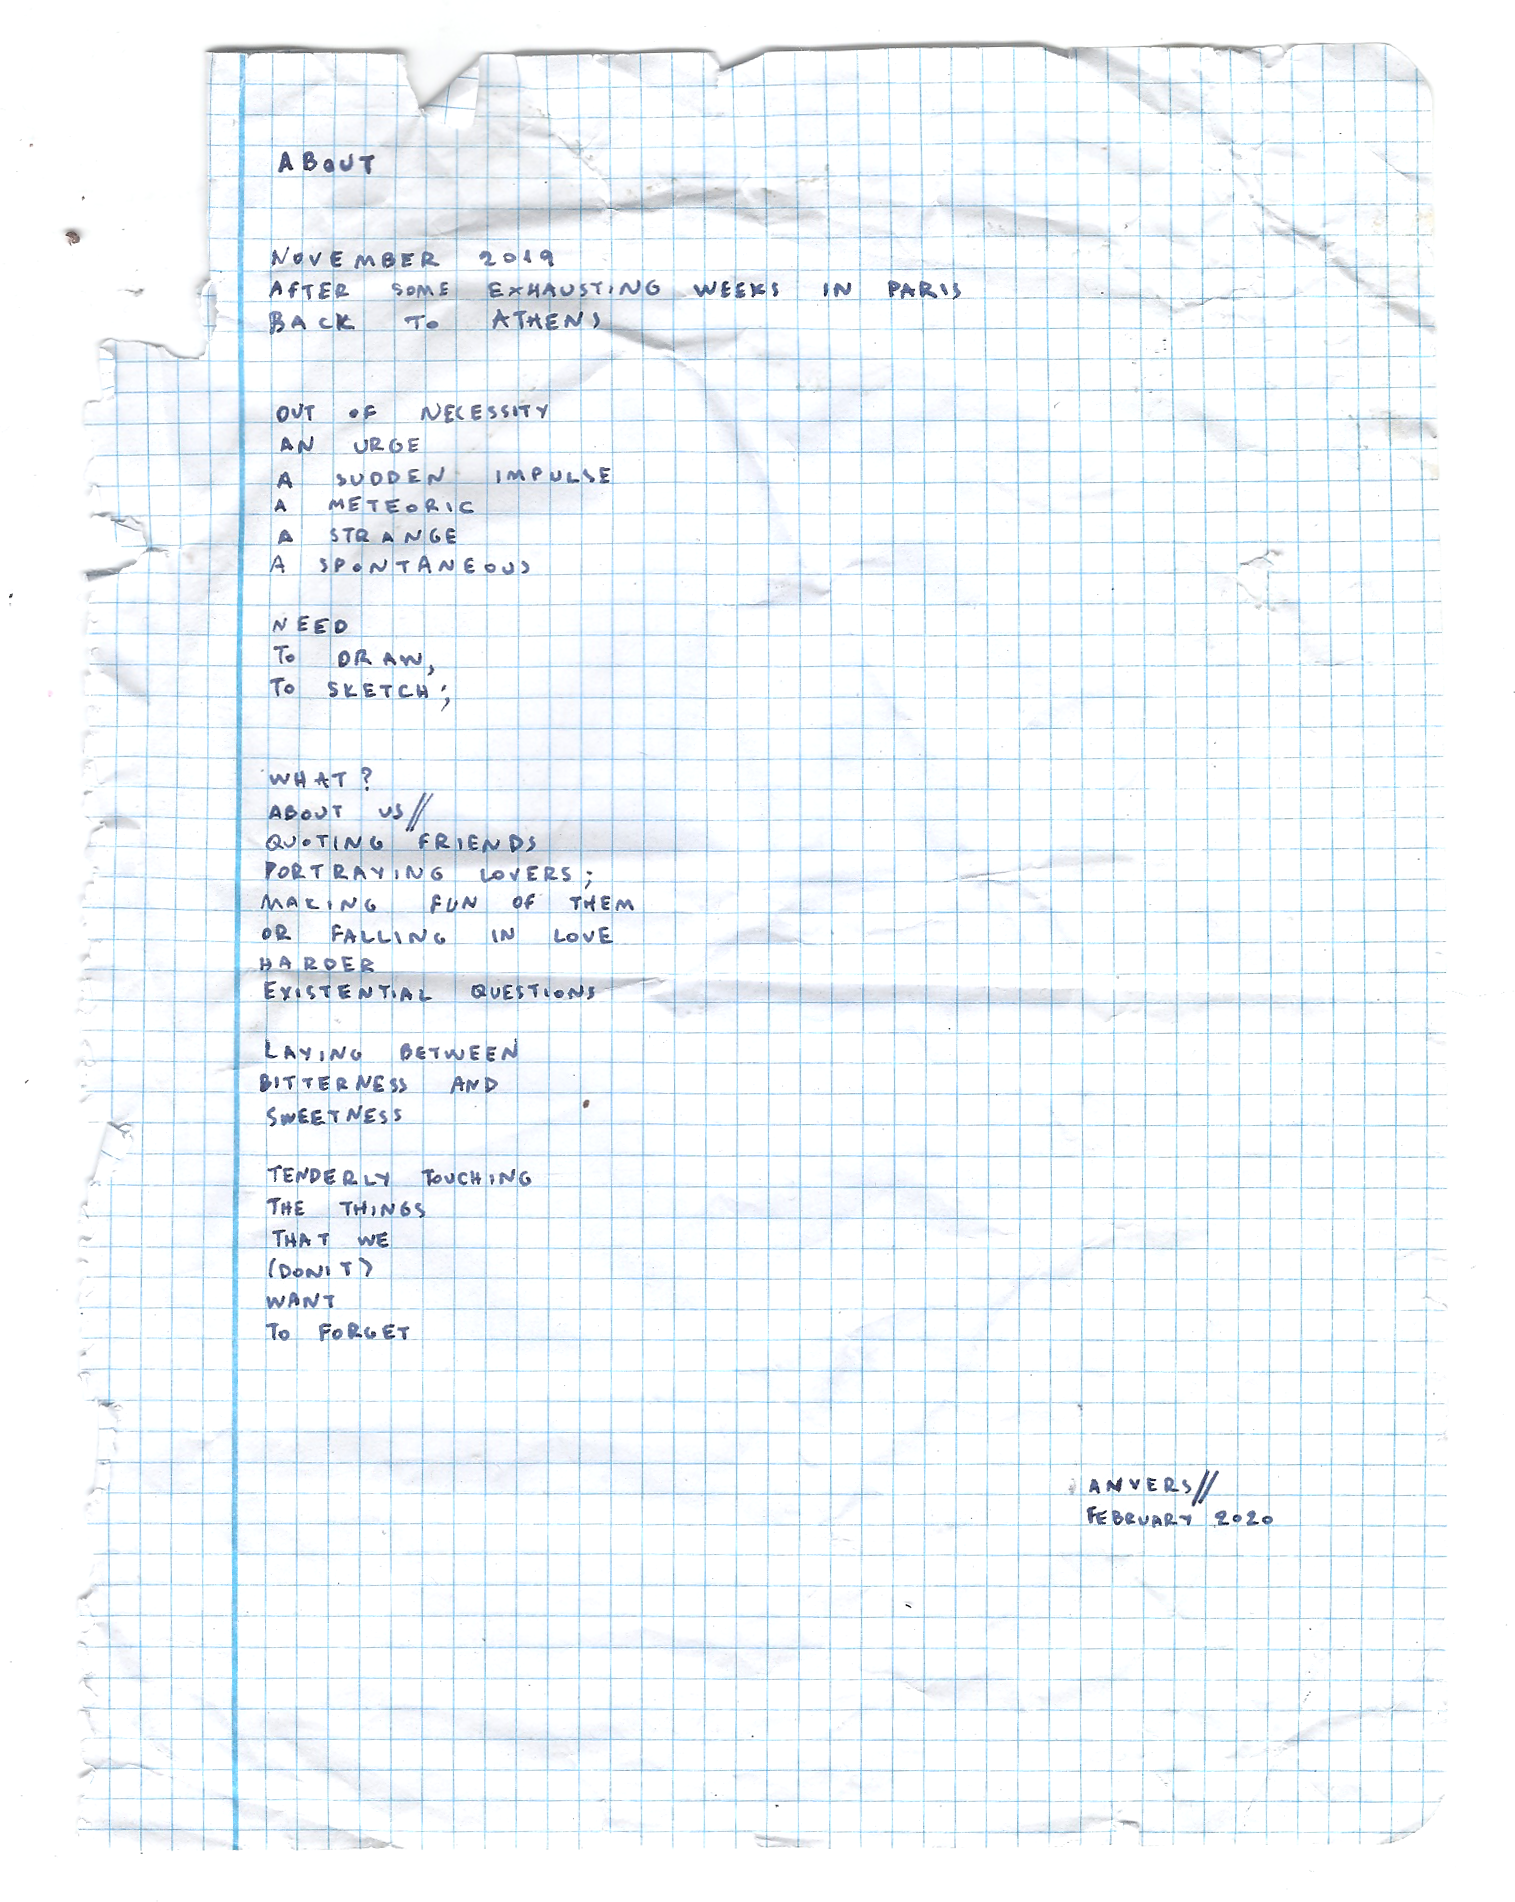 ABOUT
NOVEMBER 2019
AFTER SOME EXHAUSTING WEEKS IN PARIS
BACK TO ATHENS
OUT OF NECESSITY
AN URGE
A SUDDEN IMPULSE
A METEORIC
A STRANGE
A SPONTANEOUS
NEED
TO DRAW,
TO SKETCH;
WHAT?
ABOUT US//
QUOTING FRIENDS
PORTRAYING LOVERS;
MAKING FUN OF THEM
OR FALLING IN LOVE
HARDER
EXISTENTIAL QUESTIONS
LAYING BETWEEN
BITTERNESS AND
SWEETNESS
TENDERLY TOUCHING
THE THINGS
THAT WE
(DON'T)
WANT
TO FORGET
ANVERS//
FEBRUARY 2020